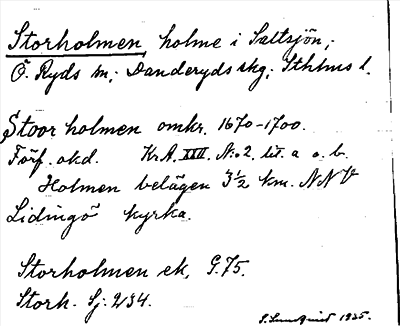 Storholmen, holme i Saltsjön;
Ö. Ryds sn; Danderyds skg; Sthlms l.
Stoor holmen omkr. 1670-1700.
Förf. okd. Kr.A. XXII. N:o 2. lit. a o. b.
Holmen belägen 3½ km. NNV
Lidingö kyrka.
Storholmen ek, G. 75.
Storh. Sj: 234.
S. Lundquist 1925.